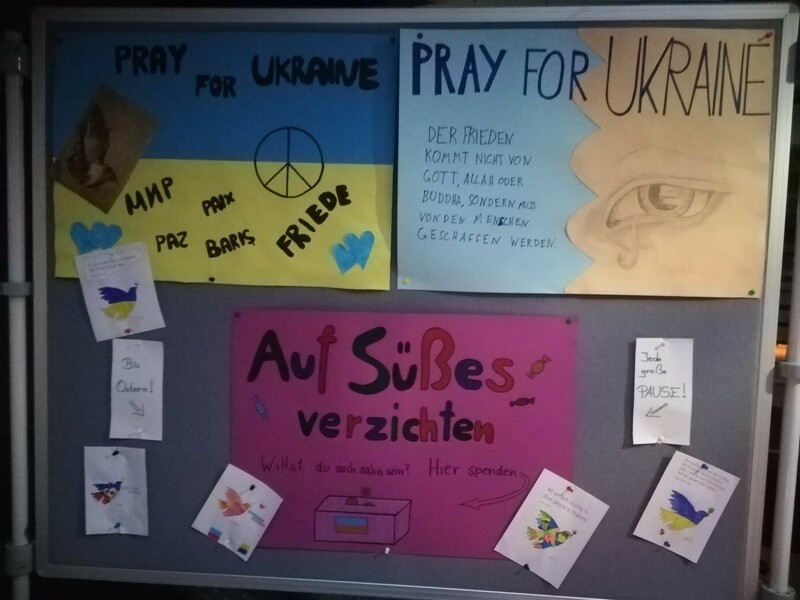 PRAY
FOR UKRAINE
МИР
PAIX
PAZ
BARIŞ
FRIEDE
PRAY FOR UKRAINE
DER FRIEDEN
KOMMT NICHT VON
GOTT, ALLAH ODER
BUDDHA, SONDERN MUSS
VON DEN MENSCHEN
GESCHAFFEN WERDEN
Bis
Ostern!
Auf Süßes
verzichten
Willst du auch dabei sein? Hier spenden
Jede
große
PAUSE!